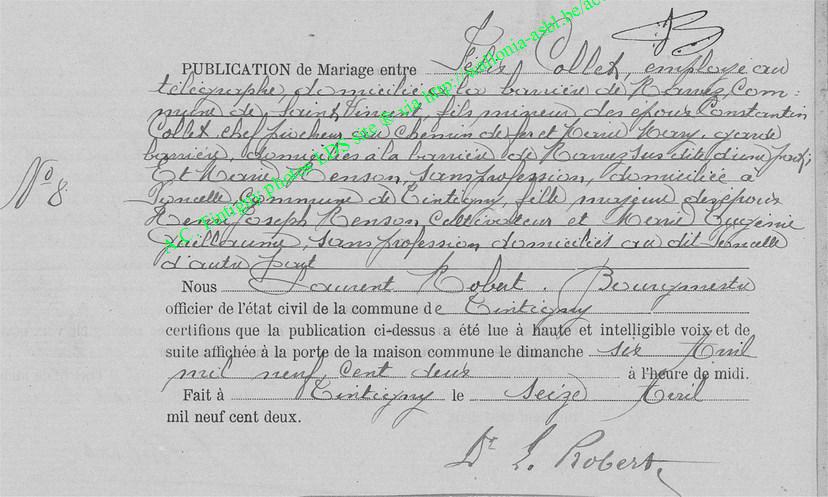 B
PUBLICATION de Mariage entre Félix Collet, employé au
télégraphe, domicilié à la barrière de Harnez, Com=
mune de Saint Vincent, fils mineur des époux Constantin
Collet, chef piocheur au chemin de fer et Marie Hary, garde
barrière, domiciliés à la barrière de Harnez susdite d'une part;
Et Marie Henson, sans profession, domiciliée à
Commune de Tintigny, fille majeure des époux
Henri Joseph Henson, Cultivateur et Marie Eugénie
Guillaume, sans profession domiciliés au dit
d'autre part
N° 8
Nous Laurent Robert, Bourgmestre
officier de l'état civil de la commune de Tintigny
certifions que la publication ci-dessus a été lue à haute et intelligible voix et de
suite affichée à la porte de la maison commune le dimanche six Avril
mil neuf cent deux à l'heure de midi.
Fait à Tintigny le seize Avril
mil neuf cent deux.
Dr L. Robert
A.C. Tintigny photos LDS site & via http://wallonia-asbl.be/ac